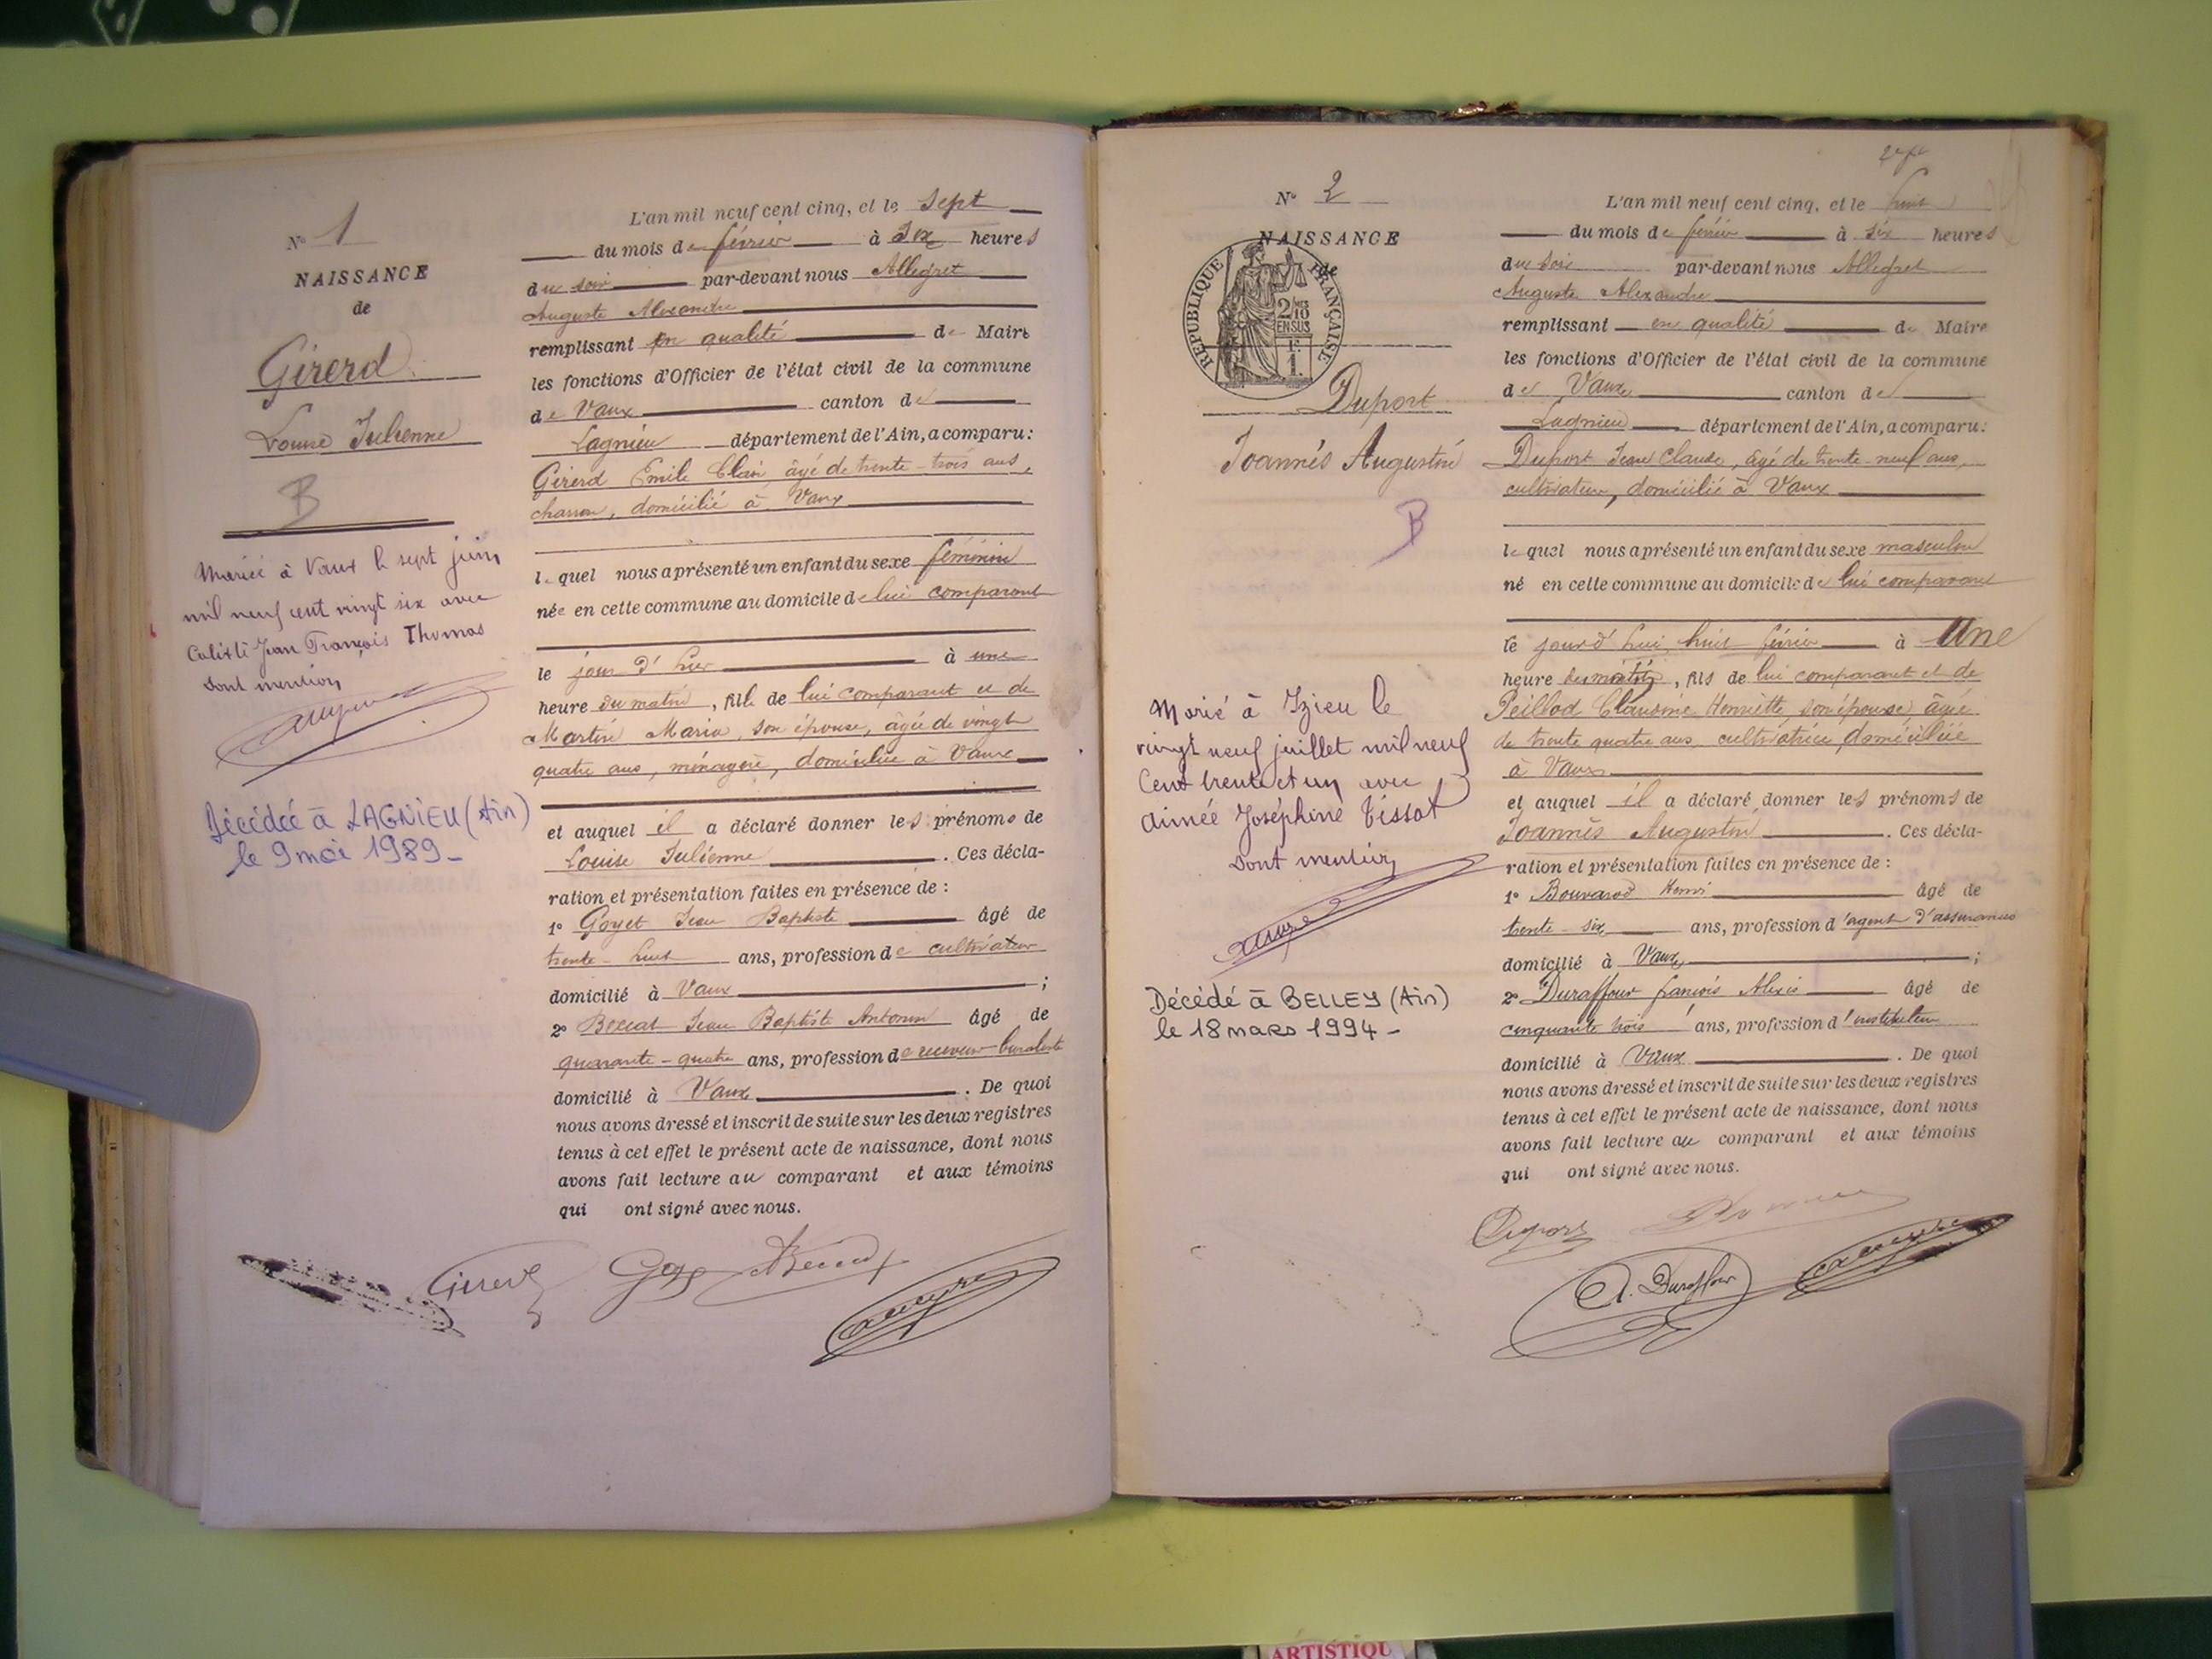 N° 1
NAISSANCE
de
Girerd
Louise Julienne
B
Mariée à Vaux le sept juin
mil neuf cent vingt six avec
Calixte Jean François Thomas
Dont mention
Décédée à LAGNIEU (Ain)
le 9 mai 1989 -
L'an mil neuf cent cinq, et le sept
du mois de février à six heures
du soir par-devant nous Allegret
Auguste Alexandre
remplissant en qualité de Maire
les fonctions d'Officier de l'état civil de la commune
de Vaux canton de
Lagnieu département de l'Ain, a comparu :
Girerd Emile Clair âgé de trente-trois ans,
charron, domicilié à Vaux
lequel nous a présenté un enfant du sexe féminin
née en cette commune au domicile de lui comparant
le jour d'hier à une
heure du matin, fille de lui comparant et de
Martin Maria, son épouse, âgée de vingt
quatre ans, ménagère, domiciliée à Vaux
et auquel il a déclaré donner les prénoms de
Louise Julienne. Ces décla-
ration et présentation faites en présence de :
1° Goyet Jean Baptiste âgé de
trente-huit ans, profession de cultivateur
domicilié à Vaux ;
2° Jean Baptiste Antonin âgé de
quarante-quatre ans, profession de receveur buraliste
domicilié à Vaux. De quoi
nous avons dressé et inscrit de suite sur les deux registres
tenus à cet effet le présent acte de naissance, dont nous
avons fait lecture au comparant et aux témoins
qui ont signé avec nous.
Girerd
N° 2
NAISSANCE
de
RÉPUBLIQUE FRANÇAISE
2/10
EN SUS
1.
Duport
Joannès Augustin
B
Marié à Izieu le
vingt neuf juillet mil neuf
Cent trente et un avec
Aimée Joséphine Tissot
Dont mention
Décédé à BELLEY (Ain)
le 18 mars 1994 -
L'an mil neuf cent cinq, et le huit
du mois de février à six heures
du soir par-devant nous Allegret
Auguste Alexandre
remplissant en qualité de Maire
les fonctions d'Officier de l'état civil de la commune
de Vaux canton de
Lagnieu département de l'Ain, a comparu :
Duport Jean Claude, âgé de trente-neuf ans,
cultivateur, domicilié à Vaux
lequel nous a présenté un enfant du sexe masculin
né en cette commune au domicile de lui comparant
le jourd'hui huit février à Une
heure du matin, fils de lui comparant et de
Peillod Henriette son épouse âgée
de trente quatre ans cultivatrice domiciliée
à Vaux
et auquel il a déclaré donner les prénoms de
Joannès Augustin. Ces décla-
ration et présentation faites en présence de :
1° Bouvard Henri âgé de
trente-six ans, profession d'agent d'assurances
domicilié à Vaux ;
2° Duraffour François Alexis âgé de
cinquante trois ans, profession d'instituteur
domicilié à Vaux. De quoi
nous avons dressé et inscrit de suite sur les deux registres
tenus à cet effet le présent acte de naissance, dont nous
avons fait lecture au comparant et aux témoins
qui ont signé avec nous.
Duport
A. Duraffour
ARTISTIQU